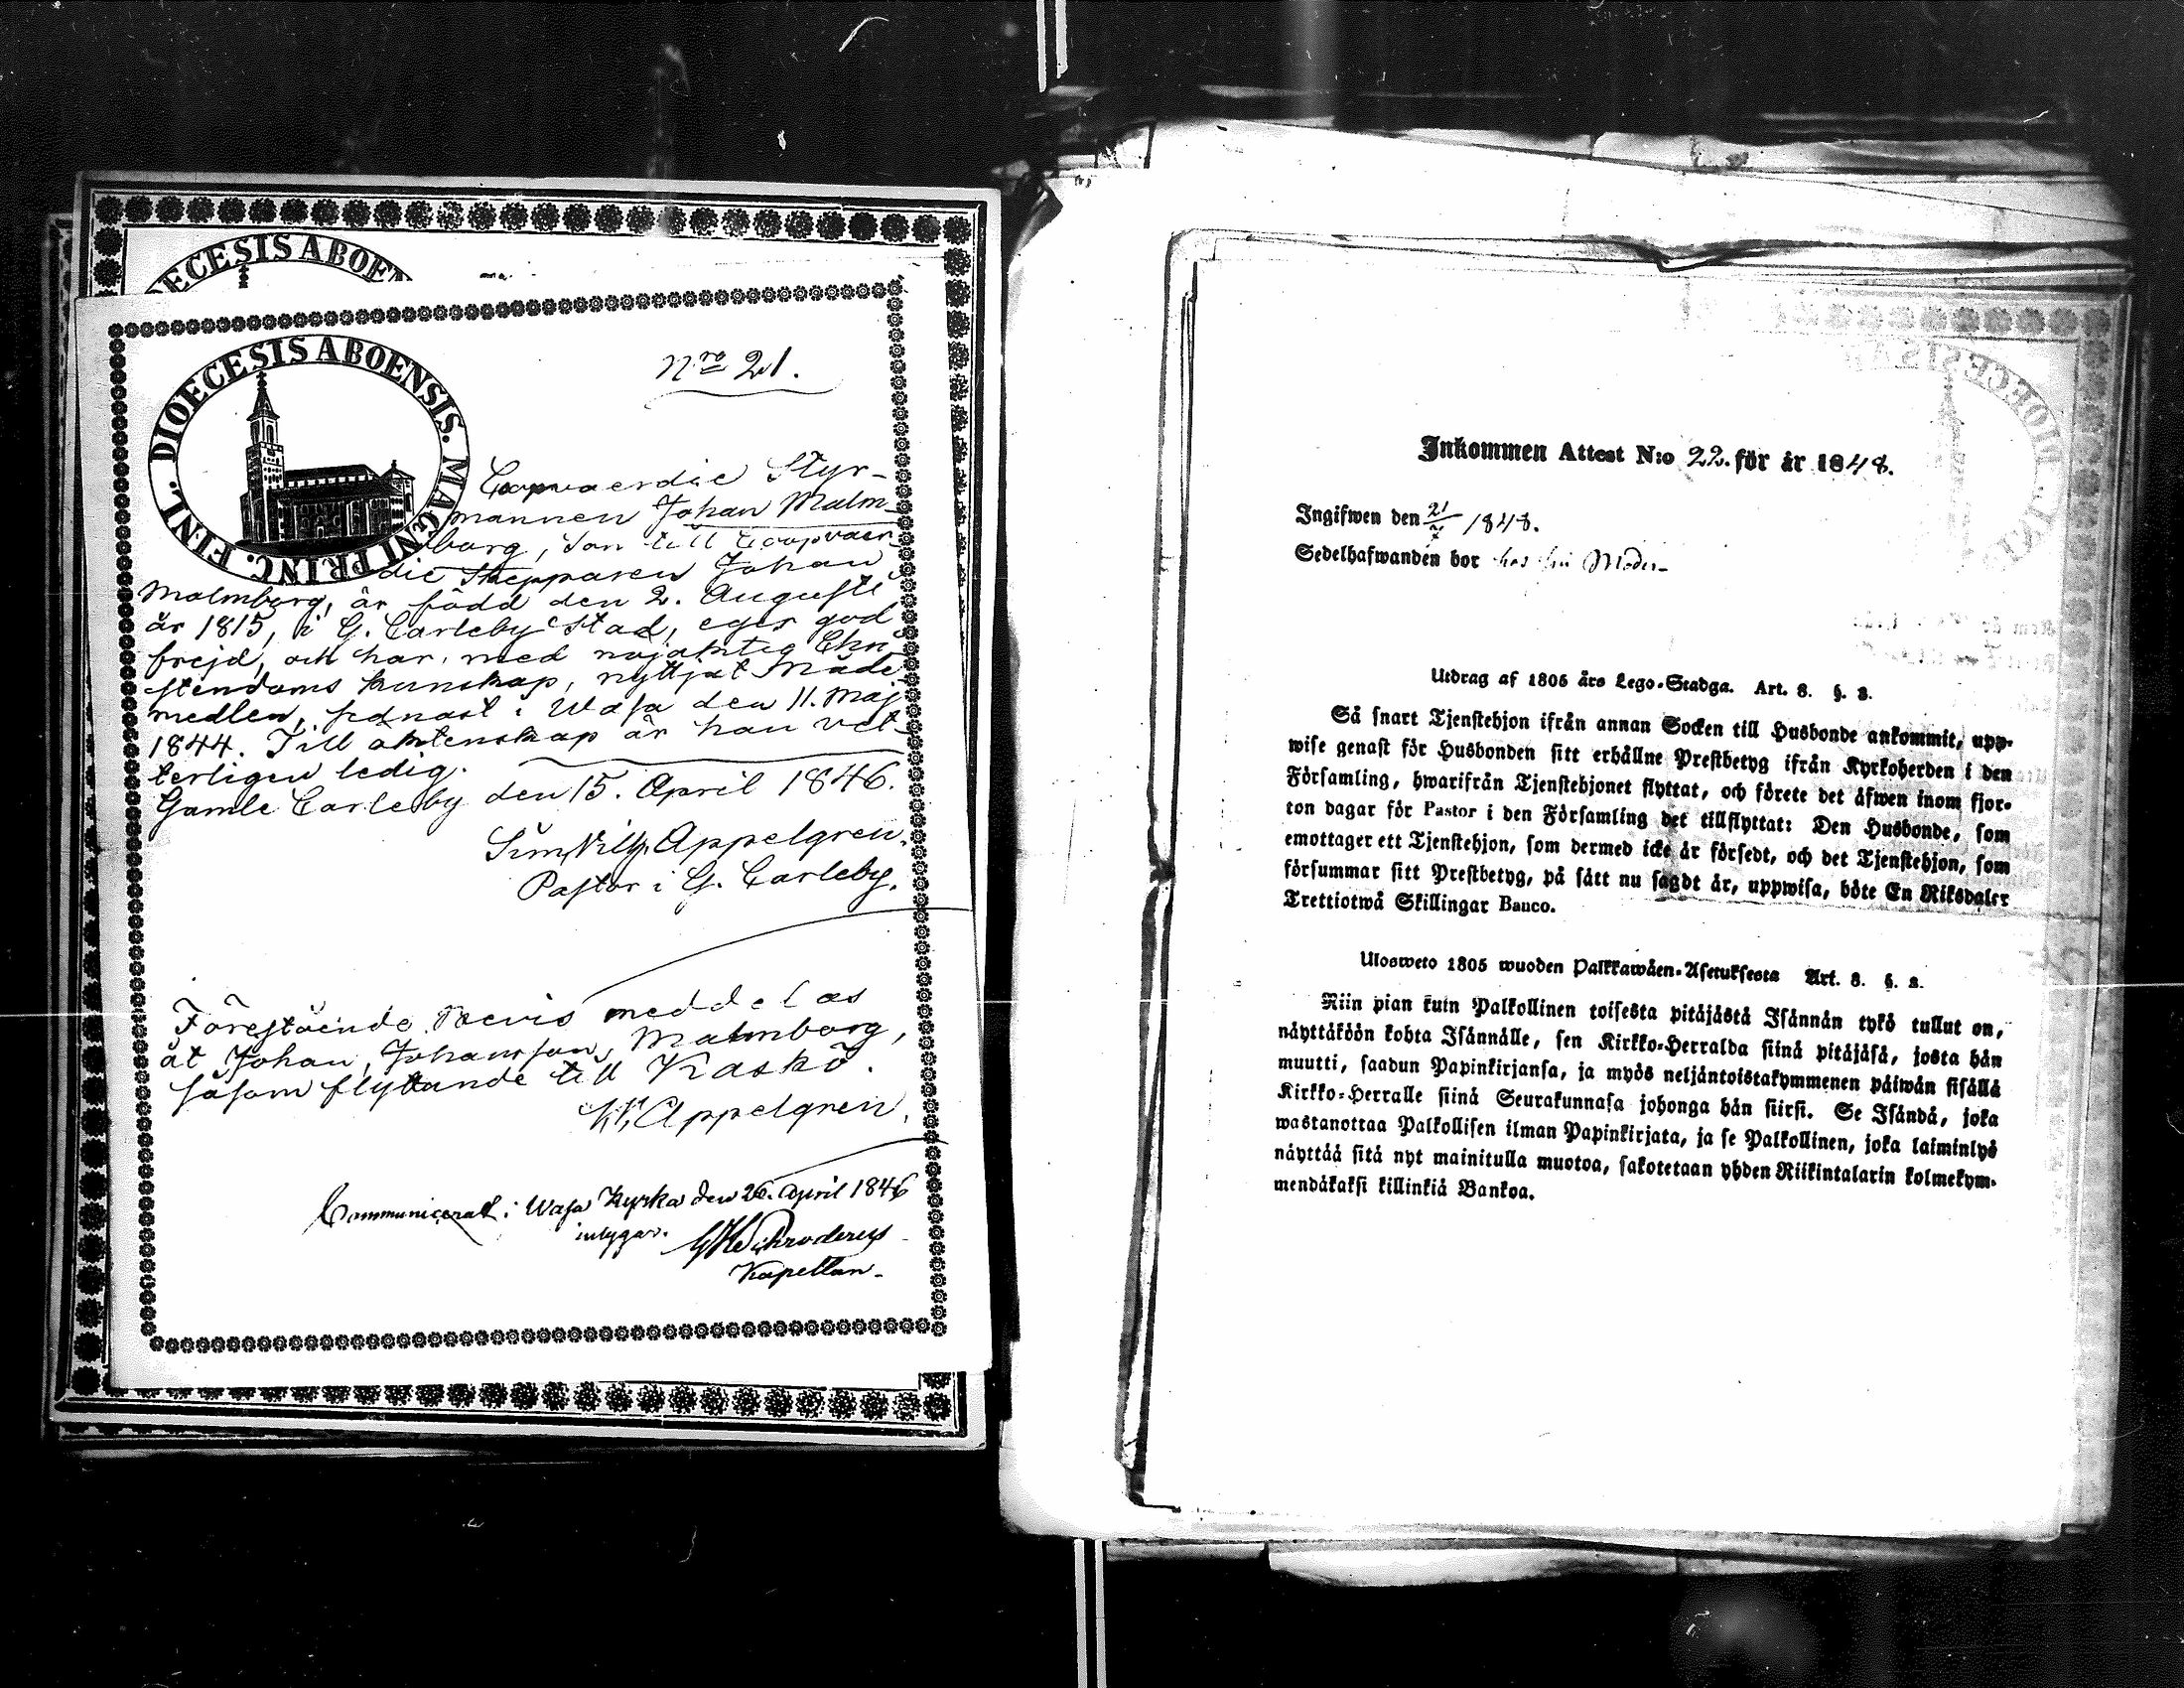 DIOECESIS ABOEN
DIOECESIS ABOENSIS. MAGNI PRINC. FINL.
N:ro 21.
Coopvaerdie Styr-
mannen Johan Malm-
borg, Son till Coopvaer-
die Skepparen Johan
Malmborg, är född den 2. Augusti
år 1815, i G. Carleby Stad, eger god
frejd, och har, med nöjaktig Chri-
stendoms kunskap, nyttjat Nåde-
medlen, sednast i Wasa den 11. Maj
1844. Till äktenskap är han vet-
terligen ledig.
Gamle Carleby den 15. April 1846.
Sim. Vilh. Appelgren.
Pastor i G. Carleby.
Förestående Bevis meddelas
åt Johan Johansson Malmborg,
såsom flyttande till Kaskö.
Appelgren.
Communicerat i Wasa Kyrka den 26. April 1846
intygar.
Kapellan.
Inkommen Attest N:o 22. för år 1848.
Ingifwen den 21/7 1848.
Sedelhafwanden bor hos sin Moder-
Utdrag af 1805 års Lego-Stadga. Art. 8. §. 3.
Så snart Tjenstehjon ifrån annan Socken till Husbonde ankommit, upp-
wise genast för Husbonden sitt erhållne Prestbetyg ifrån Kyrkoherden i den
Församling, hwarifrån Tjenstehjonet flyttat, och förete det äfwen inom fjor-
ton dagar för Pastor i den Församling det tillflyttat: Den Husbonde, som
emottager ett Tjenstehjon, som dermed icke är försedt, och det Tjenstehjon, som
försummar sitt Prestbetyg, på sätt nu sagdt är, uppwisa, böte En Riksdaler
Trettiotwå Skillingar Banco.
Ulosweto 1805 wuoden Palkkawäen-Asetuksesta Art. 8. §. 3.
Niin pian kuin Palkollinen toisesta pitäjästä Isännän tykö tullut on,
näyttäköön kohta Isännälle, sen Kirkko-Herralda siinä pitäjäsä, josta hän
muutti, saadun Papinkirjansa, ja myös neljäntoistakymmenen päiwän sisällä
Kirkko-Herralle siinä Seurakunnasa johonga hän siirsi. Se Isändä, joka
wastanottaa Palkollisen ilman Papinkirjata, ja se Palkollinen, joka laiminlyö
näyttää sitä nyt mainitulla muotoa, sakotetaan yhden Riikintalarin kolmekym-
mendäkaksi killinkiä Bankoa.